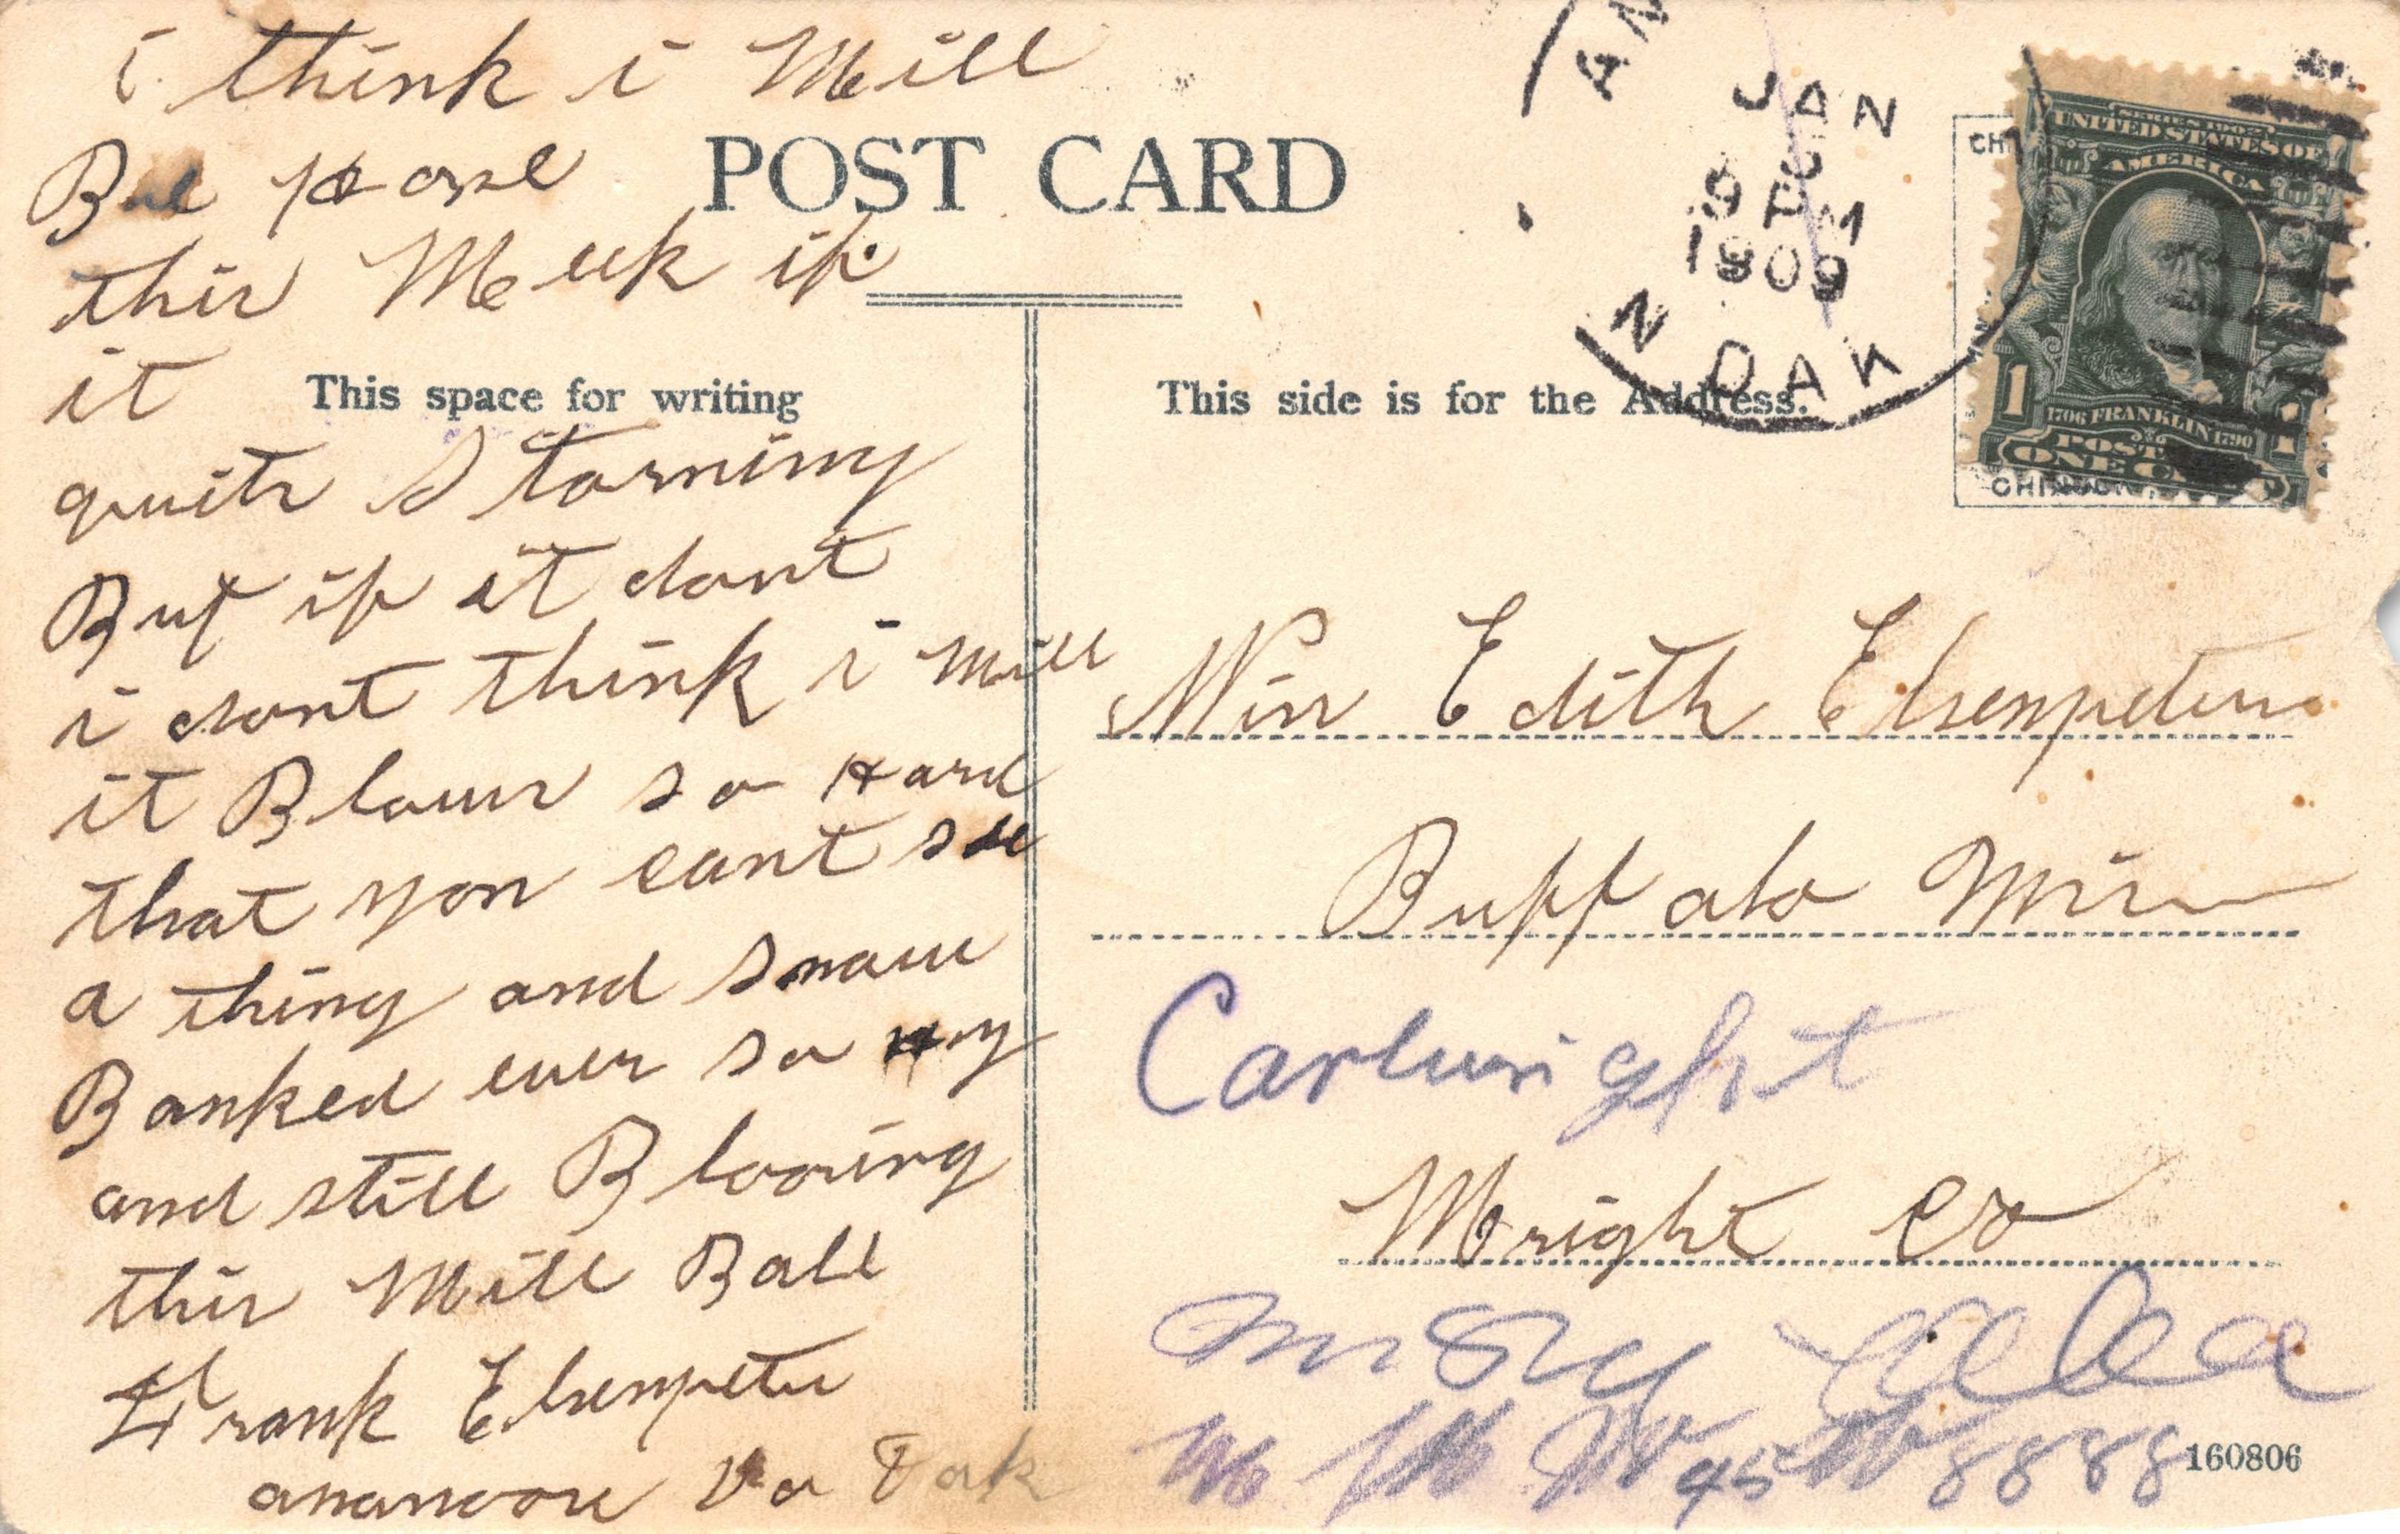 i think i Will
Be Home
this Week if
it
quits Storming
But if it dont
i dont think i Will
it Blows so Hard
that you cant see
a thing and snow
Banked ever so
and still Blowing
this Will Ball
Frank Elsenpeter
anamoose No Dak
POST CARD
This space for writing
This side is for the Address.
AN
JAN
9
PM
1909
N DAK
SERIES 1902
UNITED STATES OF
AMERICA
1706 FRANKLIN 1790
POST
ONE
1
1
CHI
Miss Edith Elsenpeter
Buffalo Minn
Cartwright
Wright co
45
8888
160806